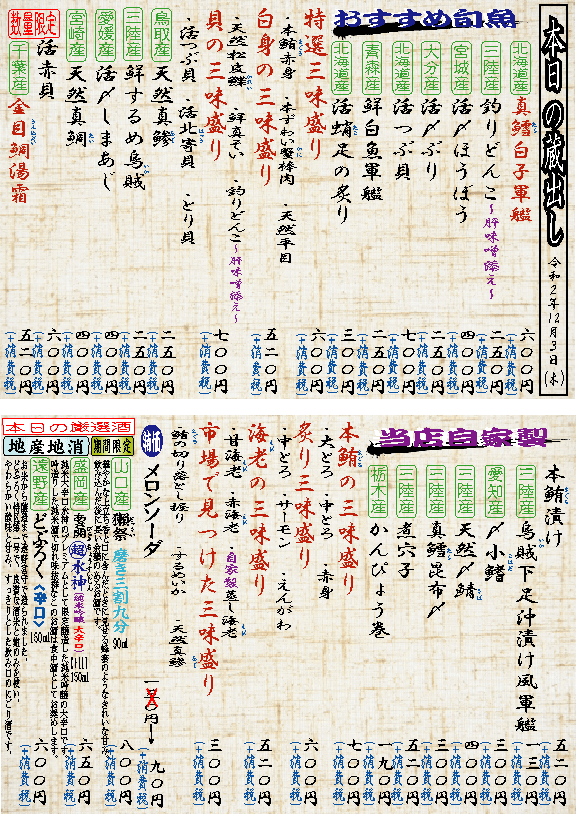 本日の蔵出し 令和2年12月3日(木)
おすすめ旬魚
北海道産 真鱈白子軍艦 六〇〇円(+消費税)
三陸産 釣りどんこ~肝味噌添え~ 二五〇円(+消費税)
宮城産 活〆ほうぼう 四〇〇円(+消費税)
大分産 活〆ぶり 二五〇円(+消費税)
北海道産 活つぶ貝 七〇〇円(+消費税)
青森産 鮮白魚軍艦 二五〇円(+消費税)
北海道産 活蛸足の炙り 三〇〇円(+消費税)
特選三味盛り 六〇〇円(+消費税)
・本鮪赤身 ・本ずわい蟹棒肉 ・天然平目
白身の三味盛り 五二〇円(+消費税)
・天然松皮鰈 ・鮮真ぞい ・釣りどんこ~肝味噌添え~
貝の三味盛り 七〇〇円(+消費税)
・活つぶ貝 ・活北寄貝 ・とり貝
鳥取産 天然真鯵 二五〇円(+消費税)
三陸産 鮮するめ烏賊 二五〇円(+消費税)
愛媛産 活〆しまあじ 四〇〇円(+消費税)
宮崎産 天然真鯛 四〇〇円(+消費税)
活赤貝 五二〇円(+消費税)
数量限定
千葉産 金目鯛湯霜 六〇〇円(+消費税)
当店自家製
本鮪漬け 五二〇円(+消費税)
三陸産 烏賊下足沖漬け風軍艦 一三〇円(+消費税)
愛知産 〆小鰭 三〇〇円(+消費税)
三陸産 天然〆鯖 四〇〇円(+消費税)
三陸産 真鱈昆布〆 三〇〇円(+消費税)
三陸産 煮穴子 五二〇円(+消費税)
栃木産 かんぴょう巻 一九〇円(+消費税)
本鮪の三味盛り 七〇〇円(+消費税)
・大とろ ・中とろ ・赤身
炙り三味盛り 六〇〇円(+消費税)
・中とろ ・サーモン ・えんがわ
海老の三味盛り 五二〇円(+消費税)
・甘海老 ・赤海老 ・自家製蒸し海老
市場で見つけた三味盛り 三〇〇円(+消費税)
鮪の切り落とし握り ・するめいか ・天然真鯵
メロンソーダ 九〇円(+消費税)
本日の厳選酒
期間限定
山口産 獺祭 磨き三割九分 90ml 八〇〇円(+消費税)
盛岡産 超水神(純米吟醸 大辛口) 150ml 六五〇円(+消費税)
地産地消
遠野産 どぶろく<辛口> 150ml 六〇〇円(+消費税)